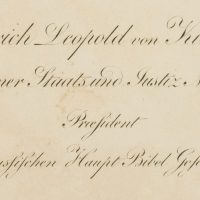 rich Leopold von Ki
ner Staats und Justiz
Præsident
ussischen Haupt Bibel Gese